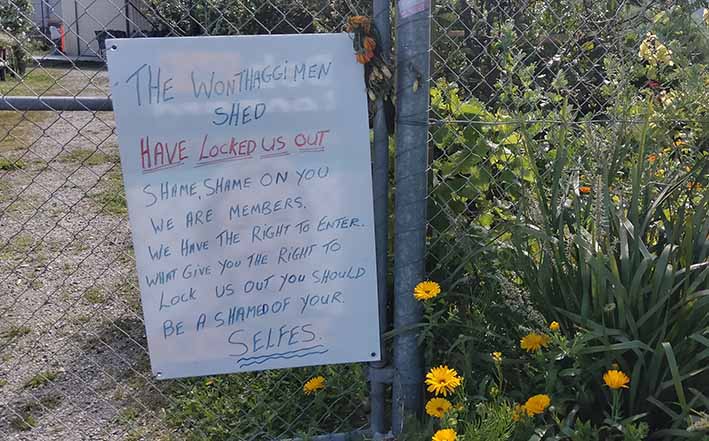 THE WONTHAGGI MEN
SHED
HAVE LOCKED US OUT
SHAME, SHAME ON YOU
WE ARE MEMBERS.
WE HAVE THE RIGHT TO ENTER.
WHAT GIVE YOU THE RIGHT TO
LOCK US OUT YOU SHOULD
BE A SHAMED OF YOUR.
SELFES.